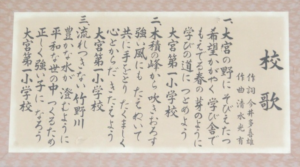 校歌
作詞 今井喜雄
作曲 清水光有
一、大宮の野にのびたつ
希望がかがやく学び舎で
もえでる春の芽のように
学びの道につとめよう
大宮第一小学校
二、木積の峰から吹きおろす
強い風にもたえぬいて
共に手をとりたくましく
心とからだをきたえよう
大宮第一小学校
三、流れつきない竹野川
豊かな水が澄むように
平和な世の中つくるため
正しく強い子になろう
大宮第一小学校